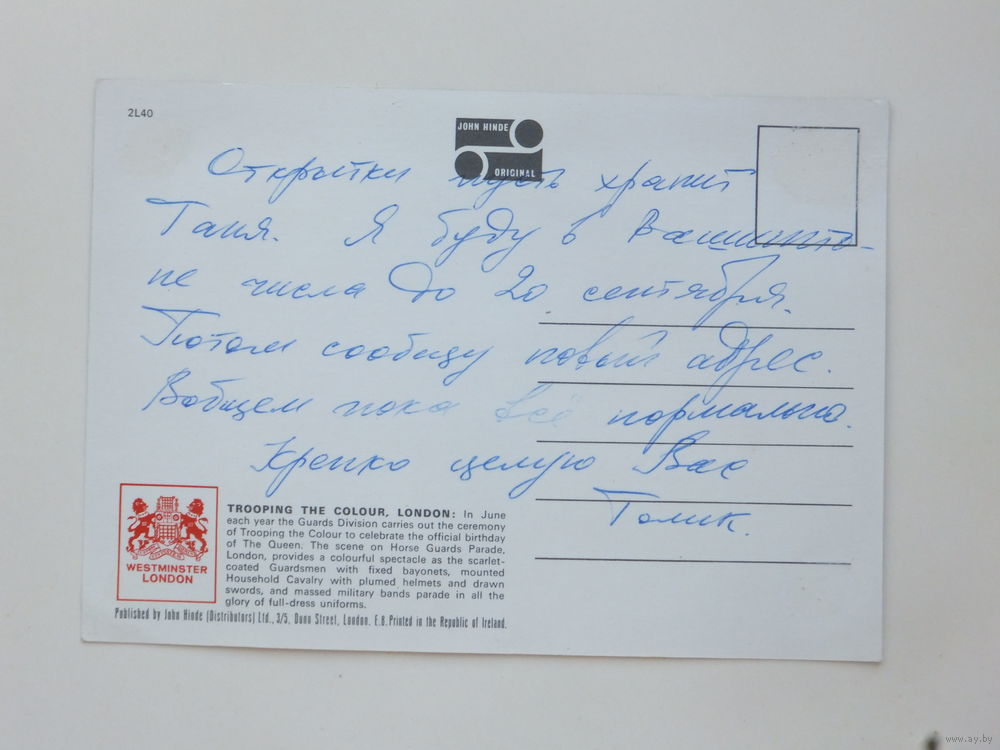 2L40
JOHN HINDE
ORIGINAL
Открытки пусть хранит
Таня. Я буду в Вашингто-
не числа до 20 сентября.
Потом сообщу новый адрес.
Вобщем пока всё нормально.
Крепко целую Вас
Толик.
WESTMINSTER
LONDON
TROOPING THE COLOUR, LONDON: In June
each year the Guards Division carries out the ceremony
of Trooping the Colour to celebrate the official birthday
of The Queen. The scene on Horse Guards Parade,
London, provides a colourful spectacle as the scarlet-
coated Guardsmen with fixed bayonets, mounted
Household Cavalry with plumed helmets and drawn
swords, and massed military bands parade in all the
glory of full-dress uniforms.
Published by John Hinde (Distributors) Ltd., 3/5, Dunn Street, London. E.8. Printed in the Republic of Ireland.
www.ay.by